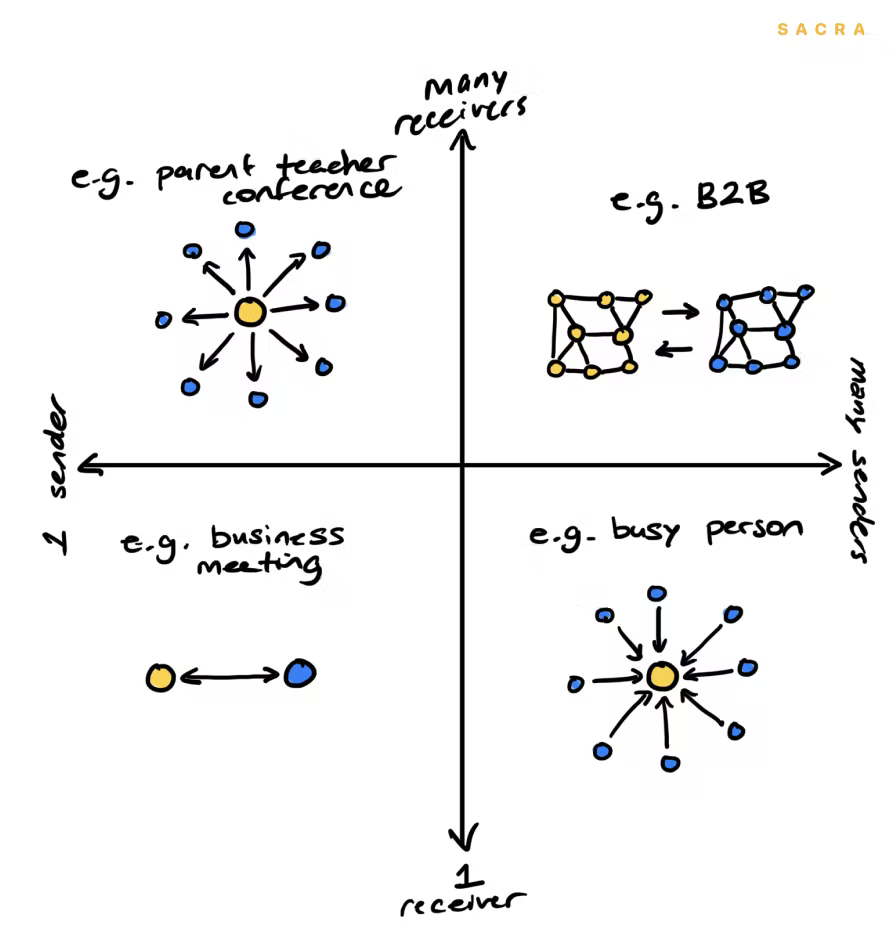 SACRA
many
receivers
e.g. parent teacher
conference
e.g. B2B
1 sender
many senders
e.g. business
meeting
e.g. busy person
1
receiver